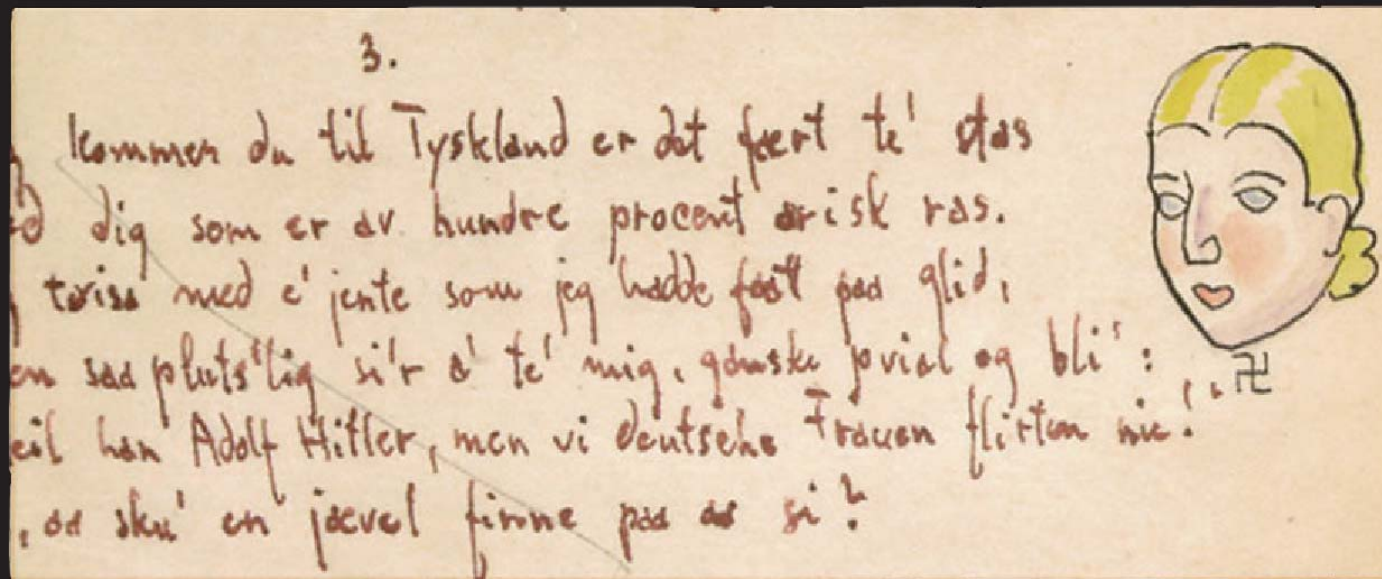 3.
kommer du til Tyskland er det fært te' stas
dig som er av hundre procent arisk ras.
med e' jente som jeg hadde faat paa glid,
saa pluts'lig si'r a' te' mig, ganske jovial og bli':
han Adolf Hitler, men vi deutsche Frauen flirten nie!"
sku' en jævel finne paa aa si?